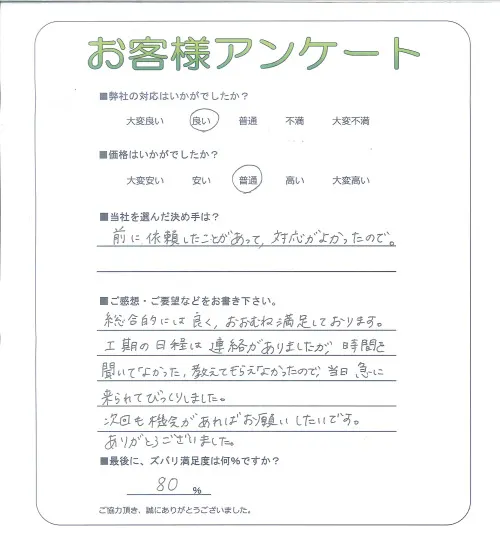 お客様アンケート
■弊社の対応はいかがでしたか?
大変良い 良い 普通 不満 大変不満
■価格はいかがでしたか?
大変安い 安い 普通 高い 大変高い
■当社を選んだ決め手は?
前に依頼したことがあって、対応がよかったので。
■ご感想・ご要望などをお書き下さい。
総合的には良く、おおむね満足しております。
工期の日程は連絡がありましたが、時間を
聞いてなかった、教えてもらえなかったので、当日急に
来られてびっくりしました。
次回も機会があればお願いしたいです。
ありがとうございました。
■最後に、ズバリ満足度は何%ですか?
80 %
ご協力頂き、誠にありがとうございました。